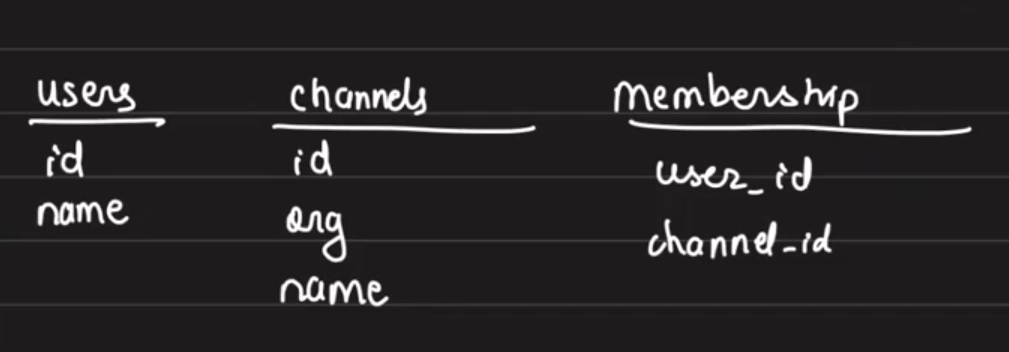 users
id
name
channels
id
org
name
membership
user_id
channel_id